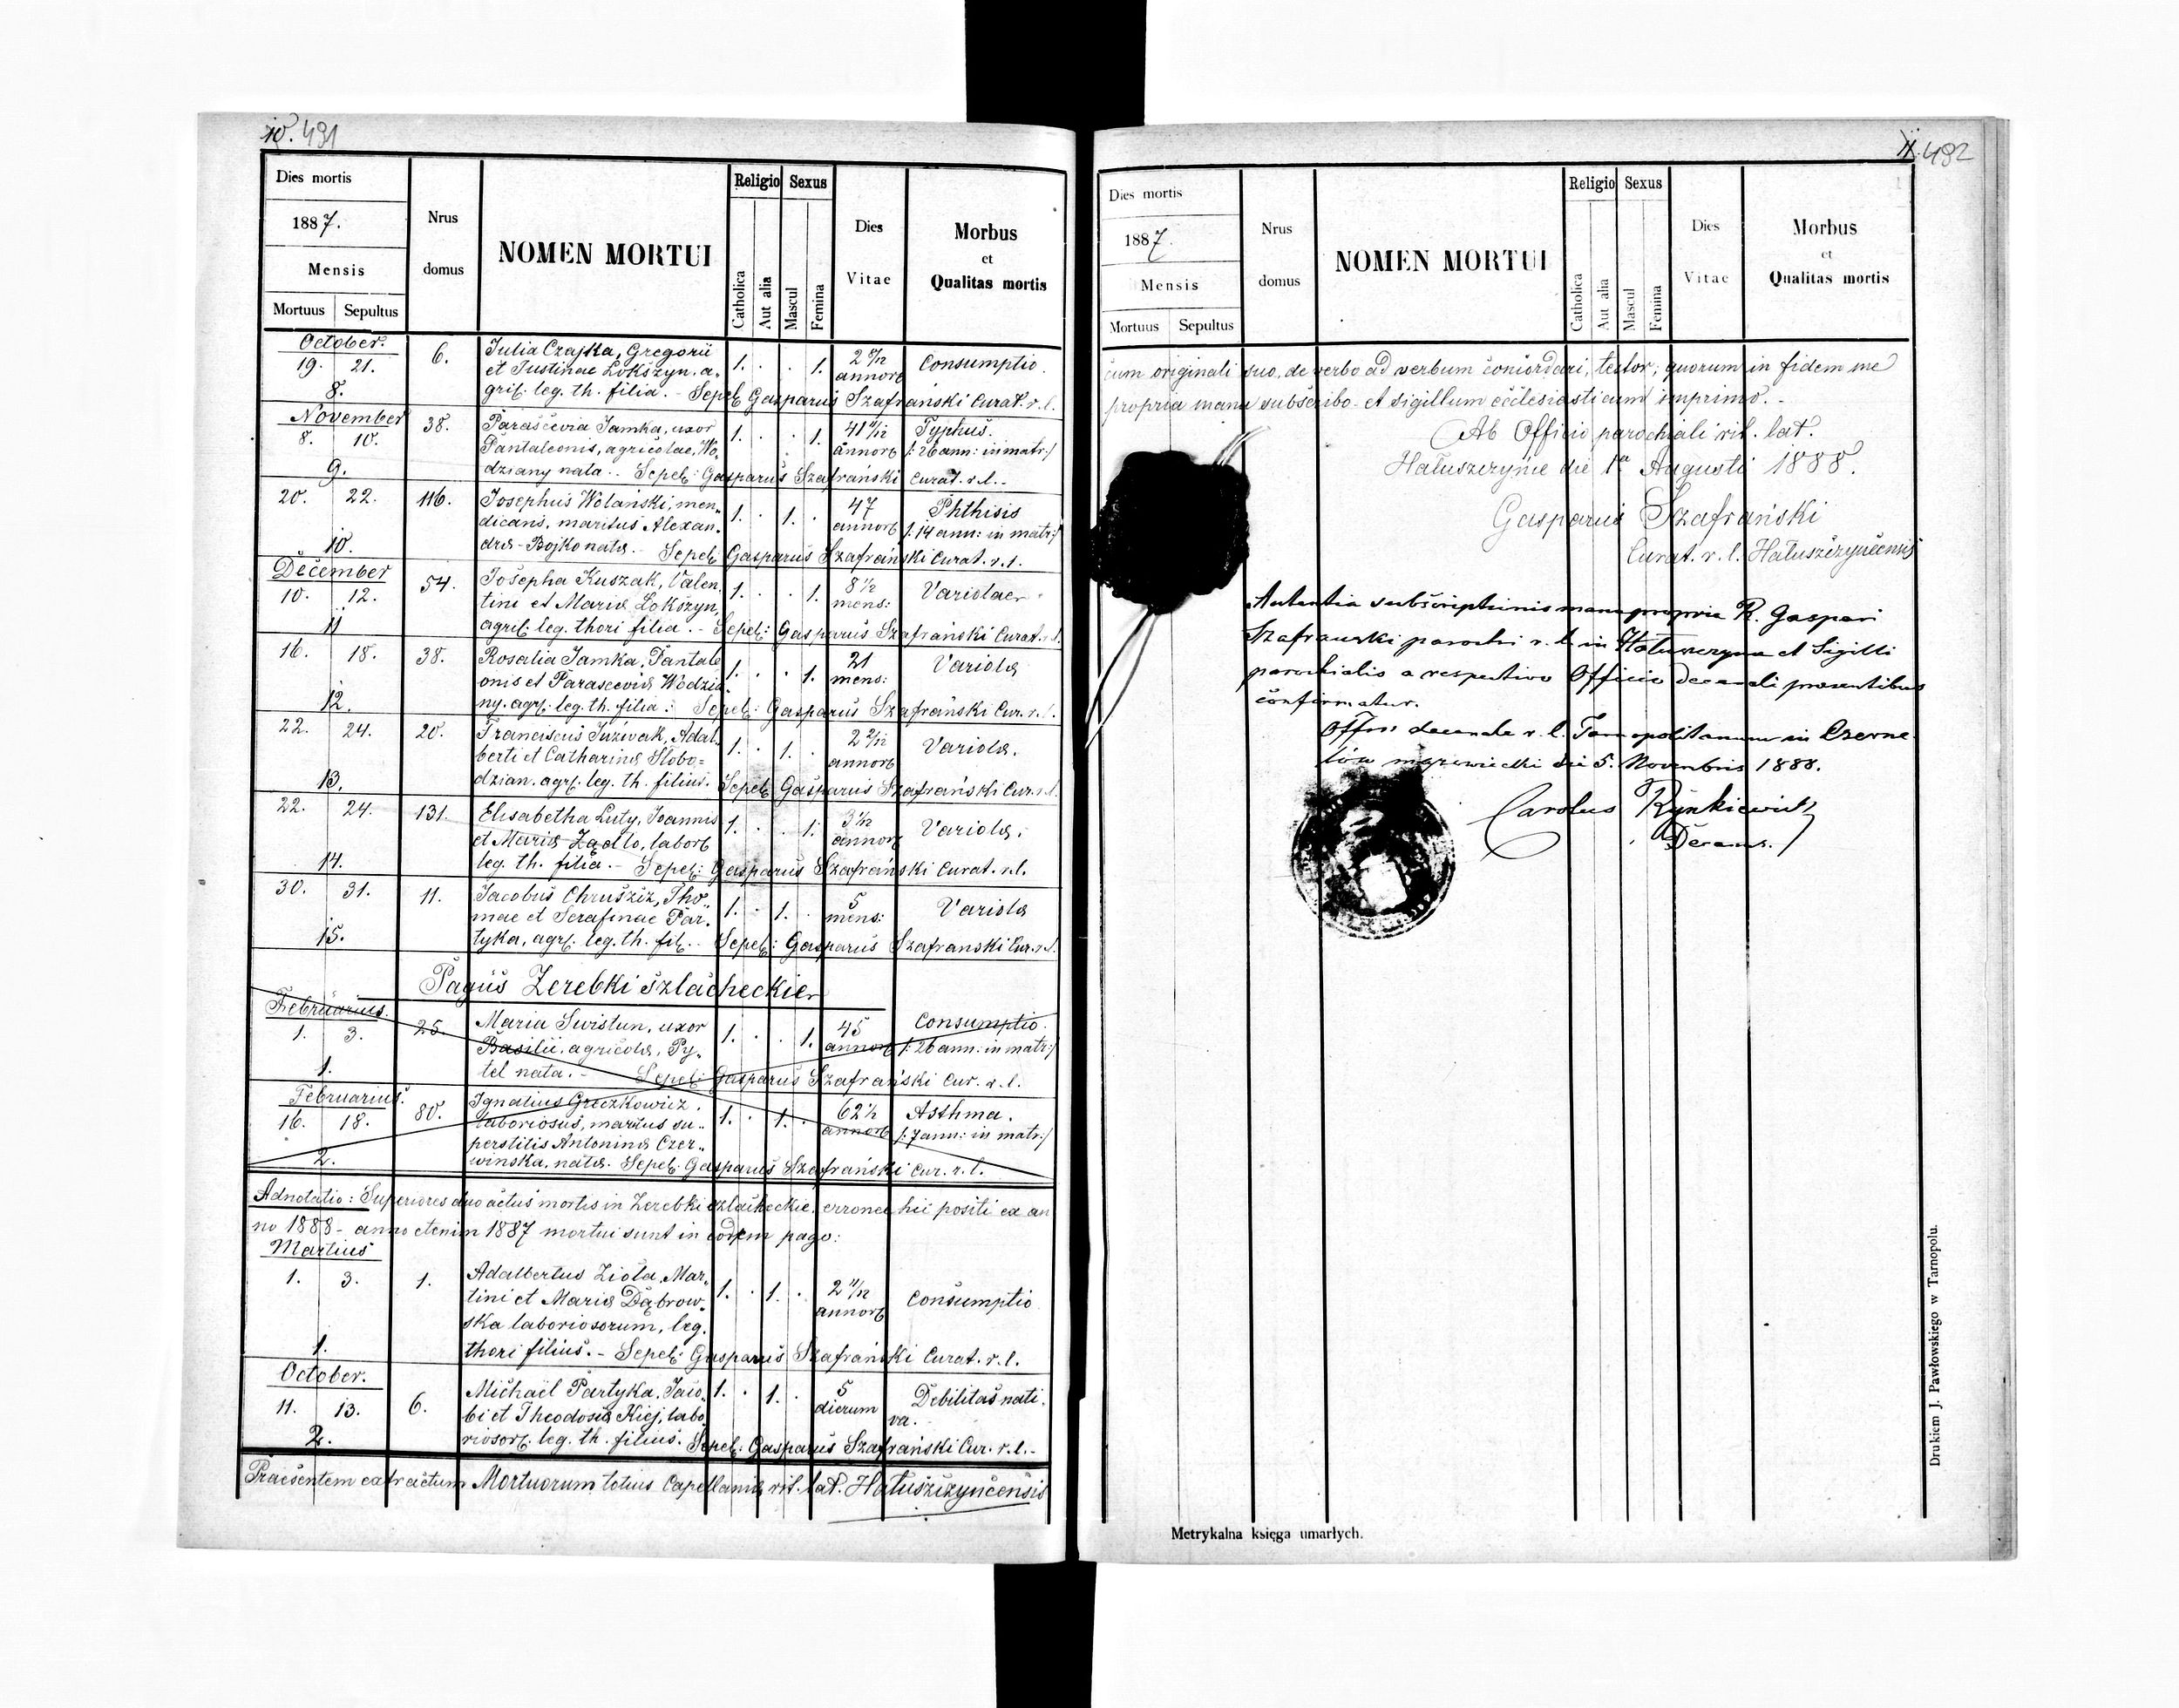 10. 491
Dies mortis
1887.
Mensis
Mortuus Sepultus
Nrus
domus
NOMEN MORTUI
Religio
Catholica
Aut alia
Sexus
Mascul
Femina
Dies
Vitae
Morbus
et
Qualitas mortis
October.
19. 21. 6. Julia Czajka, Gregorii 1. . . 1. 2 Consumptio.
et Justinae Lokszyn, a- annor
8. gric. leg. th. filia. - Sepel: Gasparus Szafrański Curat. r. l.
November
8. 10. 38. Parascevia Jamka, uxor 1. . . 1. 41 Typhus.
Pantaleonis, agricolae, Wo- annor /: 26 ann: in matr:/
9. dziany nata. - Sepel: Gasparus Szafrański Curat. r. l. -
20. 22. 116. Josephus Wolański, men- 1. . 1. . 47 Phthisis
dicans, maritus Alexan- annor /: 14 ann: in matr:/
10. dra - Bojko nata. - Sepel: Gasparus Szafrański Curat. r. l.
December
10. 12. 54. Josepha Kuszak, Valen- 1. . . 1. 8 1/2 Variolae
tini et Maria Lokszyn, mens:
11 agric. leg. thori filia. - Sepel: Gasparus Szafrański Curat. r. l.
16. 18. 38. Rosalia Jamka, Pantale- 1. . . 1. 21 Variola
onis et Parascevia Wodzia- mens:
12. ny. agr. leg. th. filia: Sepel: Gasparus Szafrański Cur. r. l.
22. 24. 20. Franciscus Juzwak, Adal- 1. . 1. . 2 2/12 Variola.
berti et Catharina Słobo- annor
13. dzian. agr. leg. th. filius. Sepel: Gasparus Szafrański Cur. r. l.
22. 24. 131. Elisabetha Luty, Joannis 1. . . 1. 3 1/12 Variola.
et Maria Żądło, labor annor
14. leg. th. filia. - Sepel: Gasparus Szafrański Curat. r. l.
30. 31. 11. Jacobus Chruszcz, Tho- 1. . 1. . 5 Variola
mae et Serafinae Par- mens:
15. tyka, agr. leg. th. fil. - Sepel: Gasparus Szafrański Cur. r. l.
Pagus Zerebki szlacheckie
Februarius.
1. 3. 25. Maria Swistun, uxor 1. . . 1. 45 Consumptio.
Basilii, agricola, Py- annor /: 26 ann: in matr:/
1. tel nata. - Sepel: Gasparus Szafrański Cur. r. l.
Februarius.
16. 18. 80. Ignatius Greczkowicz, 1. . 1. . 62 1/2 Asthma.
laboriosus, maritus su- annor /: 7 ann: in matr:/
perstitis Antonina Czer-
2. winska, nata. Sepel: Gasparus Szafrański Cur. r. l.
Adnotatio: Superiores duo actus mortis in Zerebki szlacheckie, erronee hii positi ex an
no 1888 - anno etenim 1887 mortui sunt in eodem pago:
Martius
1. 3. 1. Adalbertus Zioła, Mar- 1. . 1. . 2 11/12 Consumptio
tini et Maria Dąbrow- annor
ska laboriosorum, leg.
1. thori filius. - Sepel: Gasparus Szafrański Curat. r. l.
October.
11. 13. 6. Michael Partyka, Jaco- 1. . 1. . 5 Debilitas nati-
bi et Theodosia Kiej, labo- dierum va.
2. riosor. leg. th. filius. Sepel: Gasparus Szafrański Cur. r. l. -
Praesentem extractum Mortuorum totius Capellania rit. lat. Hałuszczyncensis
11. 492
Dies mortis
1887.
Mensis
Mortuus Sepultus
Nrus
domus
NOMEN MORTUI
Religio
Catholica
Aut alia
Sexus
Mascul
Femina
Dies
Vitae
Morbus
et
Qualitas mortis
cum originali suo, de verbo ad verbum concordari, testor; quorum in fidem me
propria manu subscribo et sigillum ecclesiasticum imprimo. -
Ab Officio parochiali rit. lat.
Hałuszczyńce die 1a Augusti 1888.
Gasparus Szafrański
Curat. r. l. Hałuszczyncensis
Autentia subscriptionis manu propria R. Gaspari
Szafrański parochi r. l. in Hałuszczyńce et Sigilli
parochialis a respectivo Officio decanali praesentibus
confirmatur.
Offm decanale r. l. Tarnopolitanum in Czerne-
lów mazowiecki die 5. Novembris 1888.
Carolus Rynkiewicz
Decanus.
Metrykalna księga umarłych.
Drukiem J. Pawłowskiego w Tarnopolu.